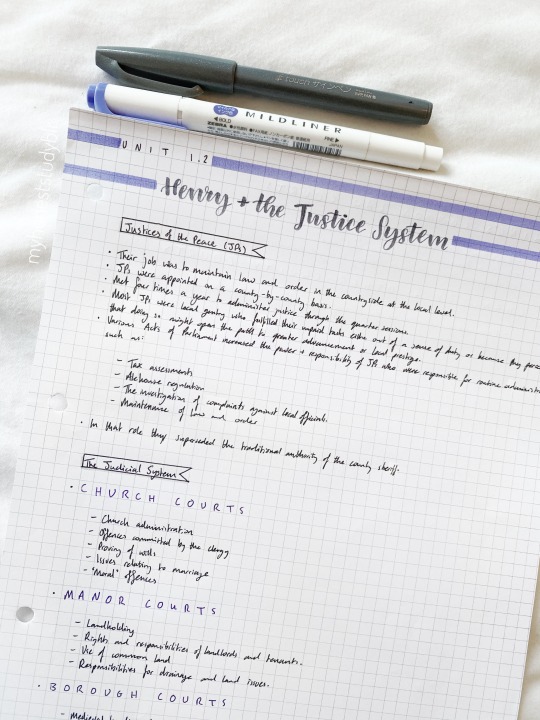 touch サインペン Pentel
MILDLINER
BOLD
FINE
UNIT 1.2
Henry + the Justice System
Justices of the Peace (JPs)
• Their job was to maintain law and order in the countryside at the local level.
• JPs were appointed on a county-by-county basis.
• Met four times a year to administer justice through the quarter sessions.
• Most JPs were local gentry who fulfilled their unpaid tasks either out of a sense of duty or because they
that doing so might open the path to greater advancement or local prestige.
• Various Acts of Parliament increased the power + responsibility of JPs who were responsible for routine
such as:
- Tax assessments
- Alehouse regulation
- The investigation of complaints against local officials.
- Maintenance of law and order
• In that role they superseded the traditional authority of the county sheriff.
The Judicial System
• CHURCH COURTS
- Church administration
- Offences committed by the clergy
- Proving of wills
- Issues relating to marriage
- "Moral" offences
• MANOR COURTS
- Landholding
- Rights and responsibilities of landlords and tenants.
- Use of common land
- Responsibilities for drainage and land issues.
• BOROUGH COURTS